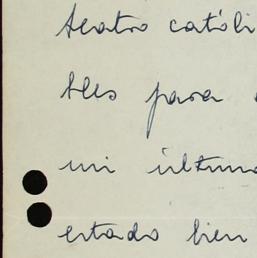 teatro católi
bles para
mi última
estado bien